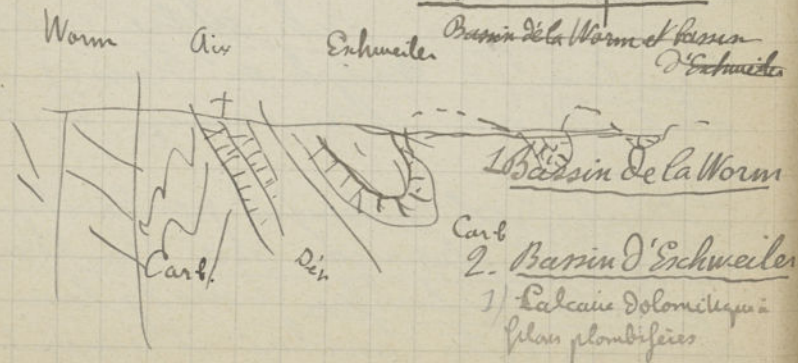 Worm Aix Eschweiler
Bassin de la Worm et bassin
d'Eschweiler
1. Bassin de la Worm
Carb
2. Bassin d'Eschweiler
Carb. Dév
1) Calcaire dolomitique à
filons plombifères